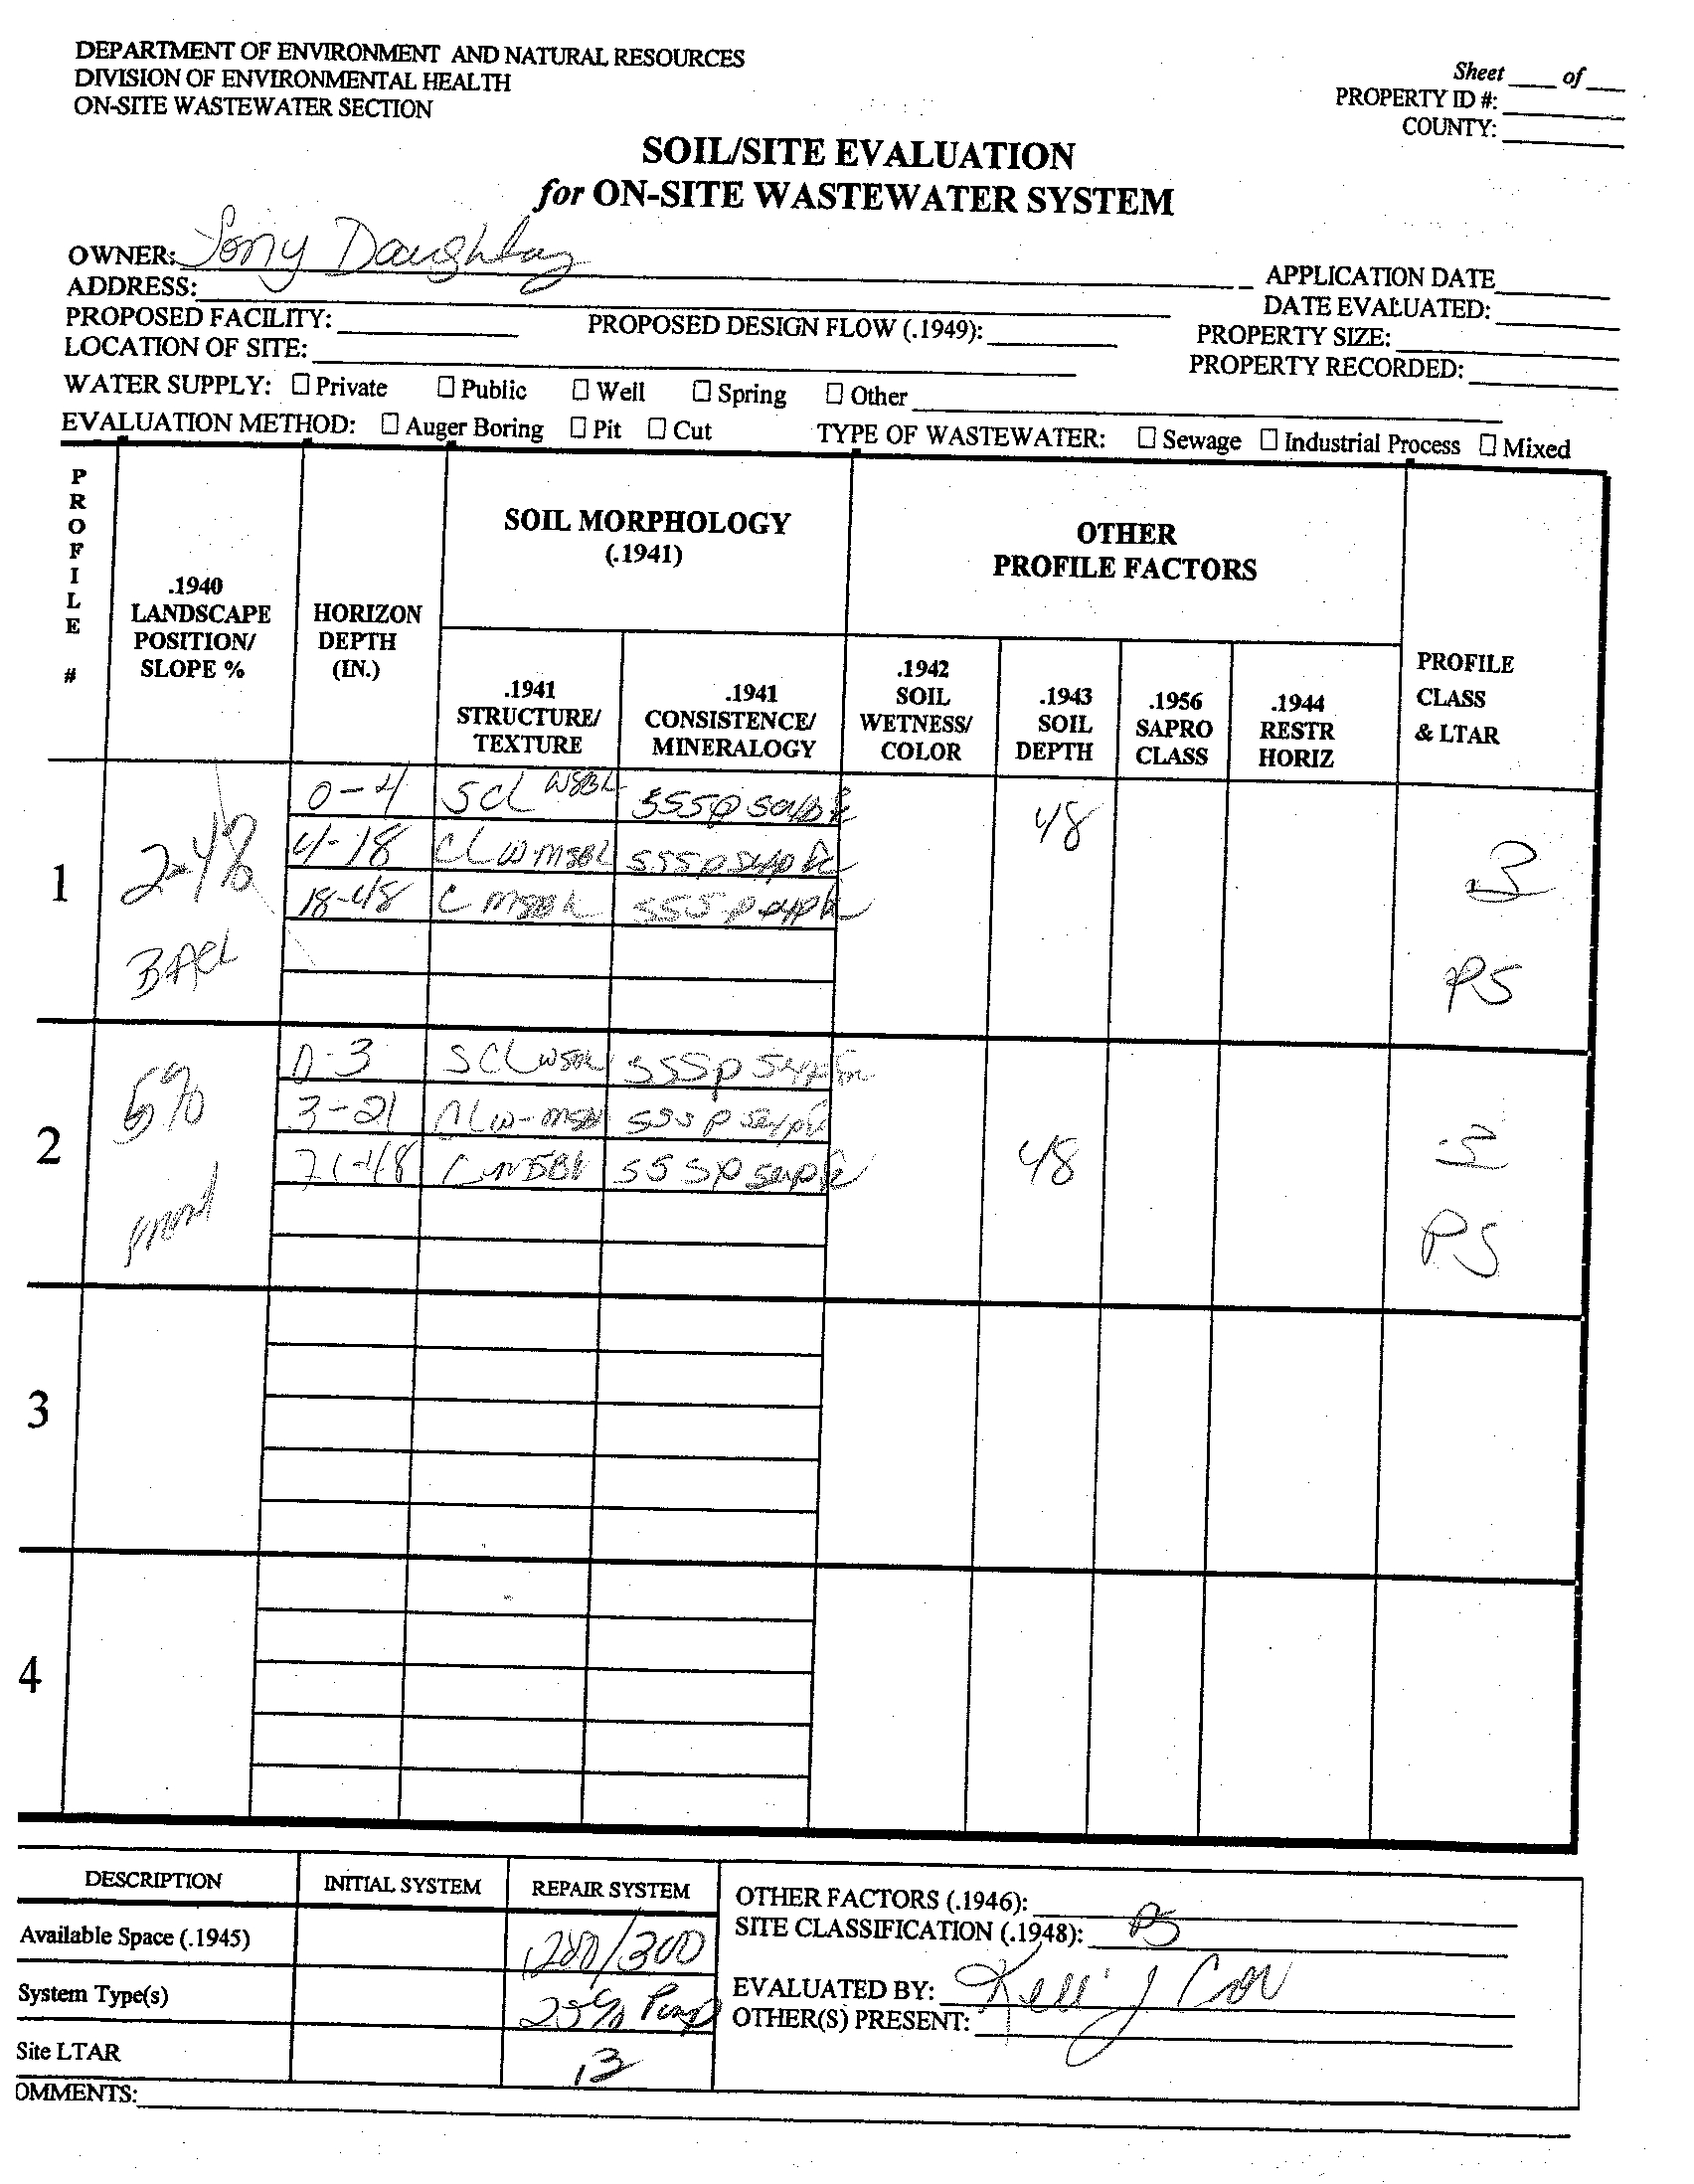 DEPARTMENT OF ENVIRONMENT AND NATURAL RESOURCES
DIVISION OF ENVIRONMENTAL HEALTH
ON-SITE WASTEWATER SECTION
Sheet ____ of ____
PROPERTY ID #:
COUNTY:
SOIL/SITE EVALUATION
for ON-SITE WASTEWATER SYSTEM
OWNER: Tony
ADDRESS:
APPLICATION DATE
DATE EVALUATED:
PROPOSED FACILITY: PROPOSED DESIGN FLOW (.1949): PROPERTY SIZE:
LOCATION OF SITE: PROPERTY RECORDED:
WATER SUPPLY: ☐ Private ☐ Public ☐ Well ☐ Spring ☐ Other
EVALUATION METHOD: ☐ Auger Boring ☐ Pit ☐ Cut TYPE OF WASTEWATER: ☐ Sewage ☐ Industrial Process ☐ Mixed
PROFILE #
.1940
LANDSCAPE
POSITION/
SLOPE %
HORIZON
DEPTH
(IN.)
SOIL MORPHOLOGY
(.1941)
.1941
STRUCTURE/
TEXTURE
.1941
CONSISTENCE/
MINERALOGY
OTHER
PROFILE FACTORS
.1942
SOIL
WETNESS/
COLOR
.1943
SOIL
DEPTH
.1956
SAPRO
CLASS
.1944
RESTR
HORIZ
PROFILE
CLASS
& LTAR
1
2-4%
0-4 SCL
4-18 CL
18-48 C
48
.3
PS
2
5%
Front
0-3 SCL
3-21 CL
21-48 C
48
.3
PS
3
4
DESCRIPTION INITIAL SYSTEM REPAIR SYSTEM
Available Space (.1945)
System Type(s) 25% Pump
Site LTAR .3
OTHER FACTORS (.1946):
SITE CLASSIFICATION (.1948): PS
EVALUATED BY:
OTHER(S) PRESENT:
OMMENTS: